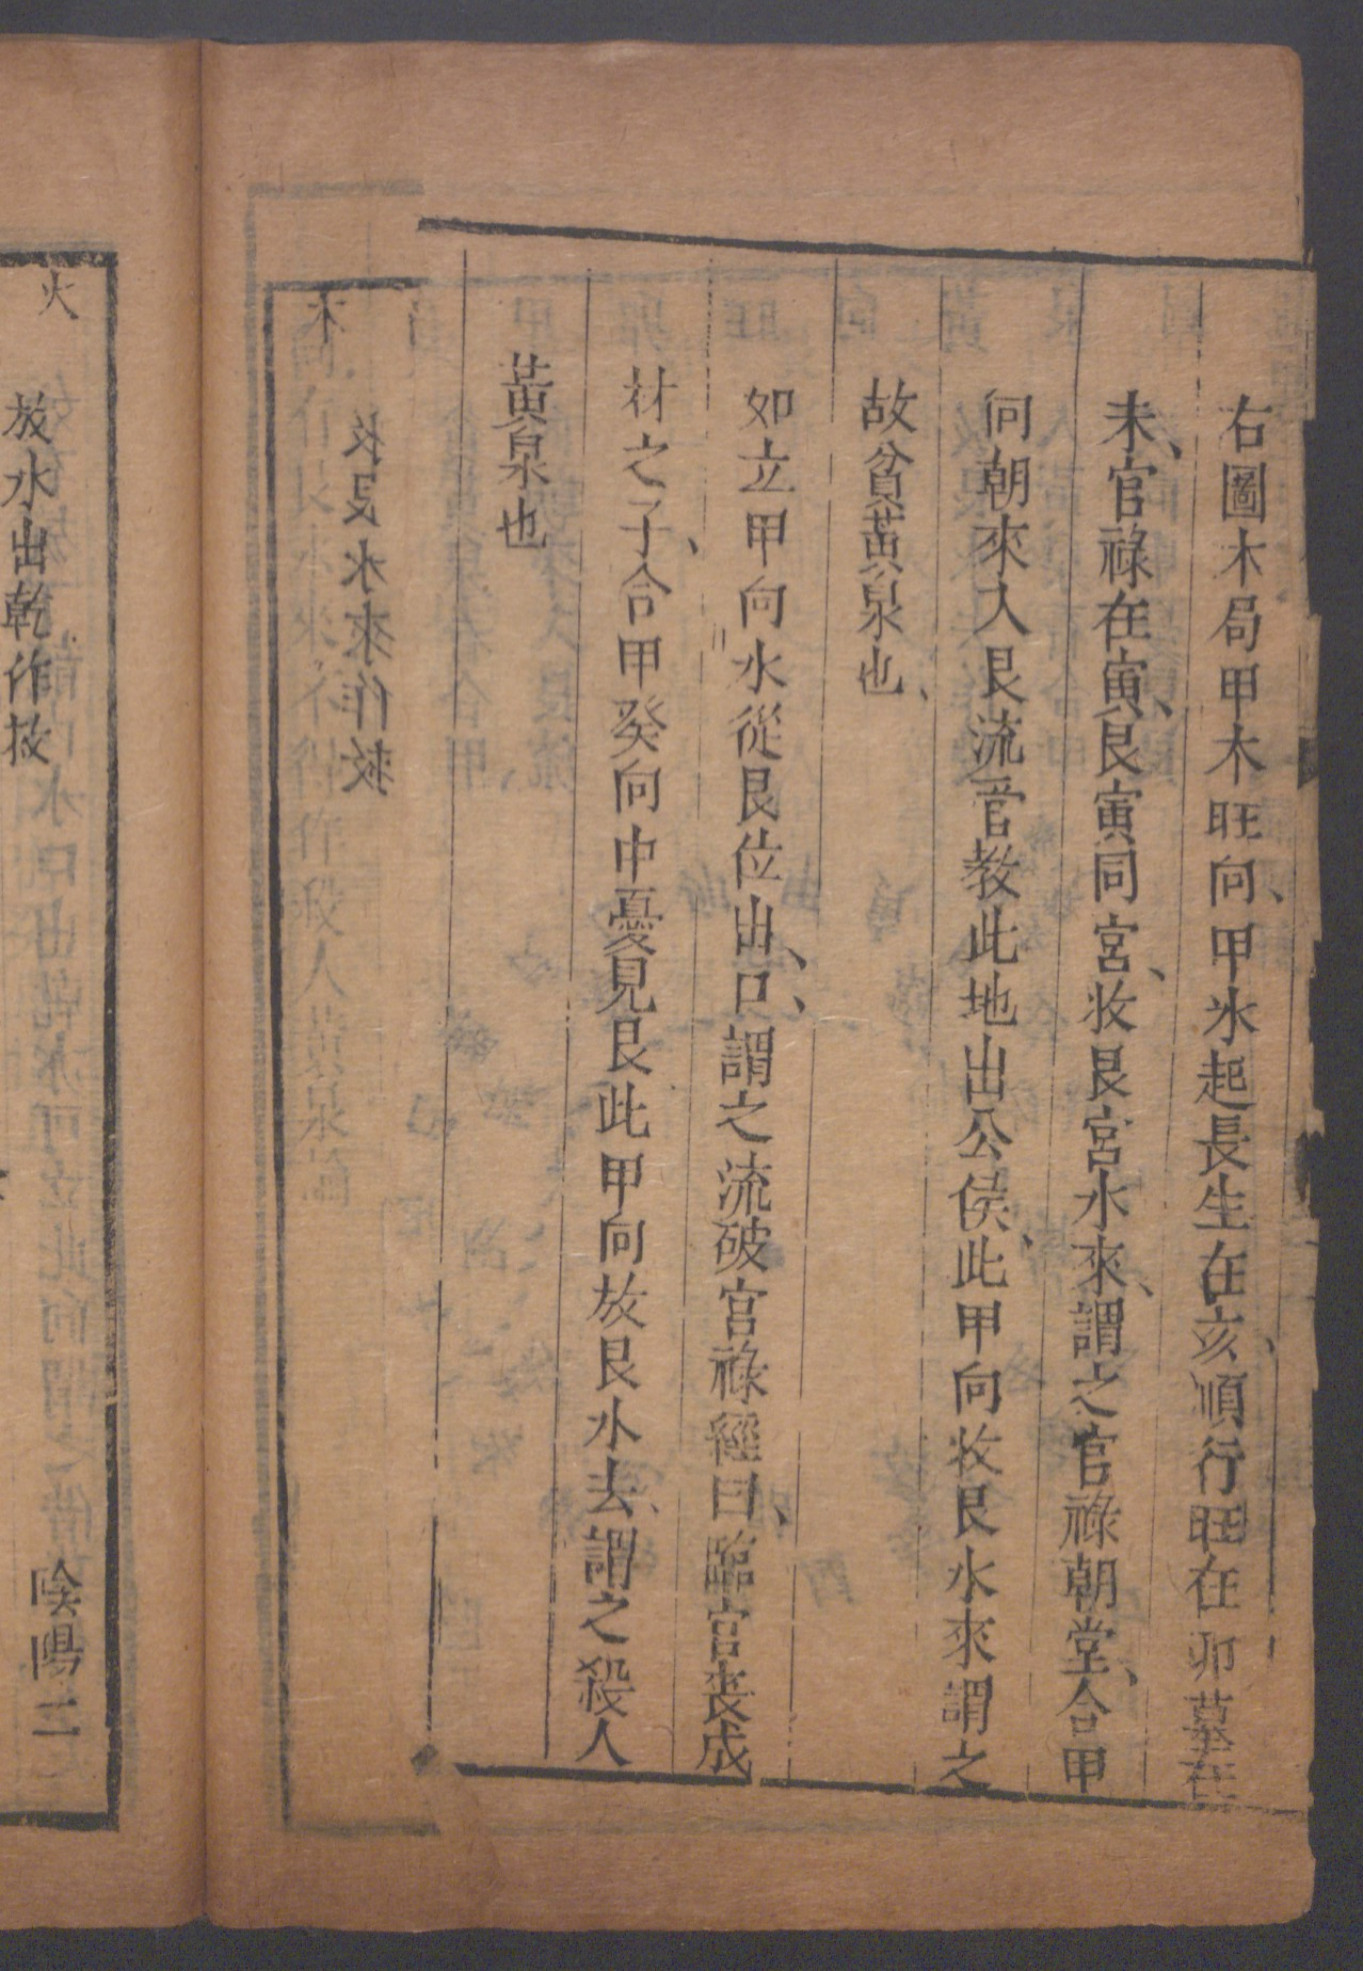 右圖木局甲木旺向、甲氺起長生在亥、順行旺在卯墓在
未、官祿在寅、艮寅同宮、收艮宮水來、謂之官祿朝堂、合甲
向朝來入艮流官教此地出公侯、此甲向收艮水來謂之
故貧黃泉也、
如立甲向水從艮位出口、謂之流破官祿經曰、臨官喪成
材之子、合甲癸向中憂見艮此甲向放艮水去、謂之殺人
黃泉也
木
收艮水來作救
火
放水出乾作救
陰陽二